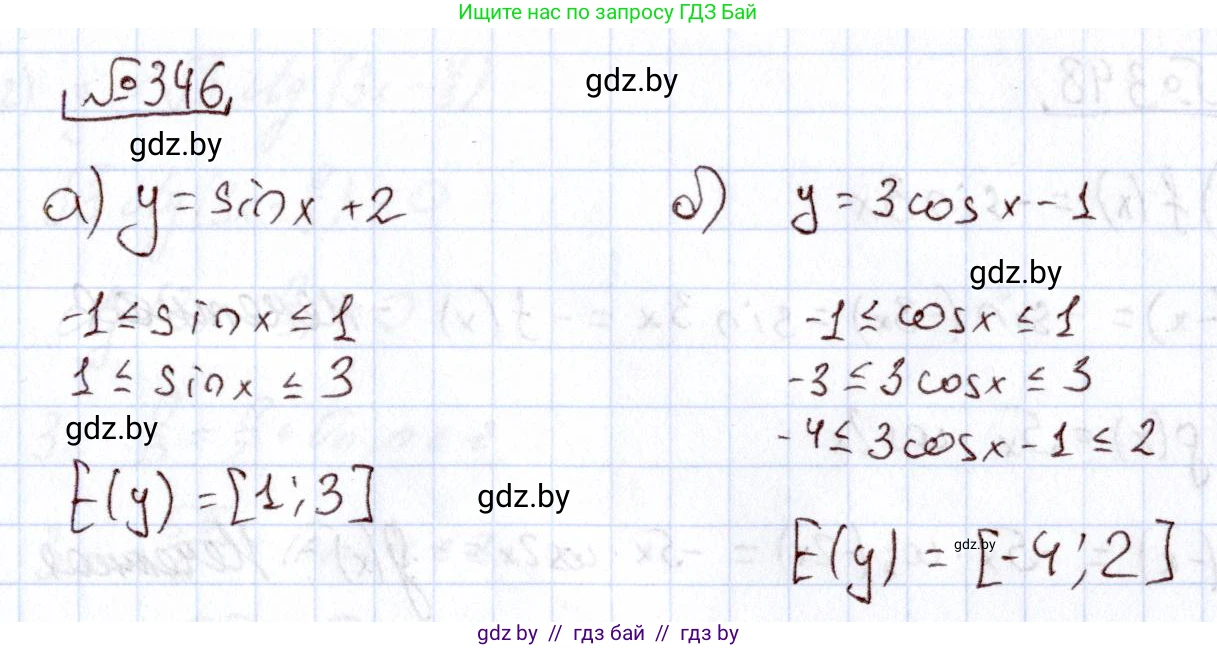 Ищите нас по запросу ГДЗ Бай
№346
gdz.by
gdz.by
а) y = sin x + 2
-1 ≤ sin x ≤ 1
1 ≤ sin x ≤ 3
gdz.by
E(y) = [1; 3]
gdz.by
б) y = 3 cos x - 1
gdz.by
-1 ≤ cos x ≤ 1
-3 ≤ 3 cos x ≤ 3
-4 ≤ 3 cos x - 1 ≤ 2
gdz.by
E(y) = [-4; 2]
gdz.by // гдз бай // гдз by